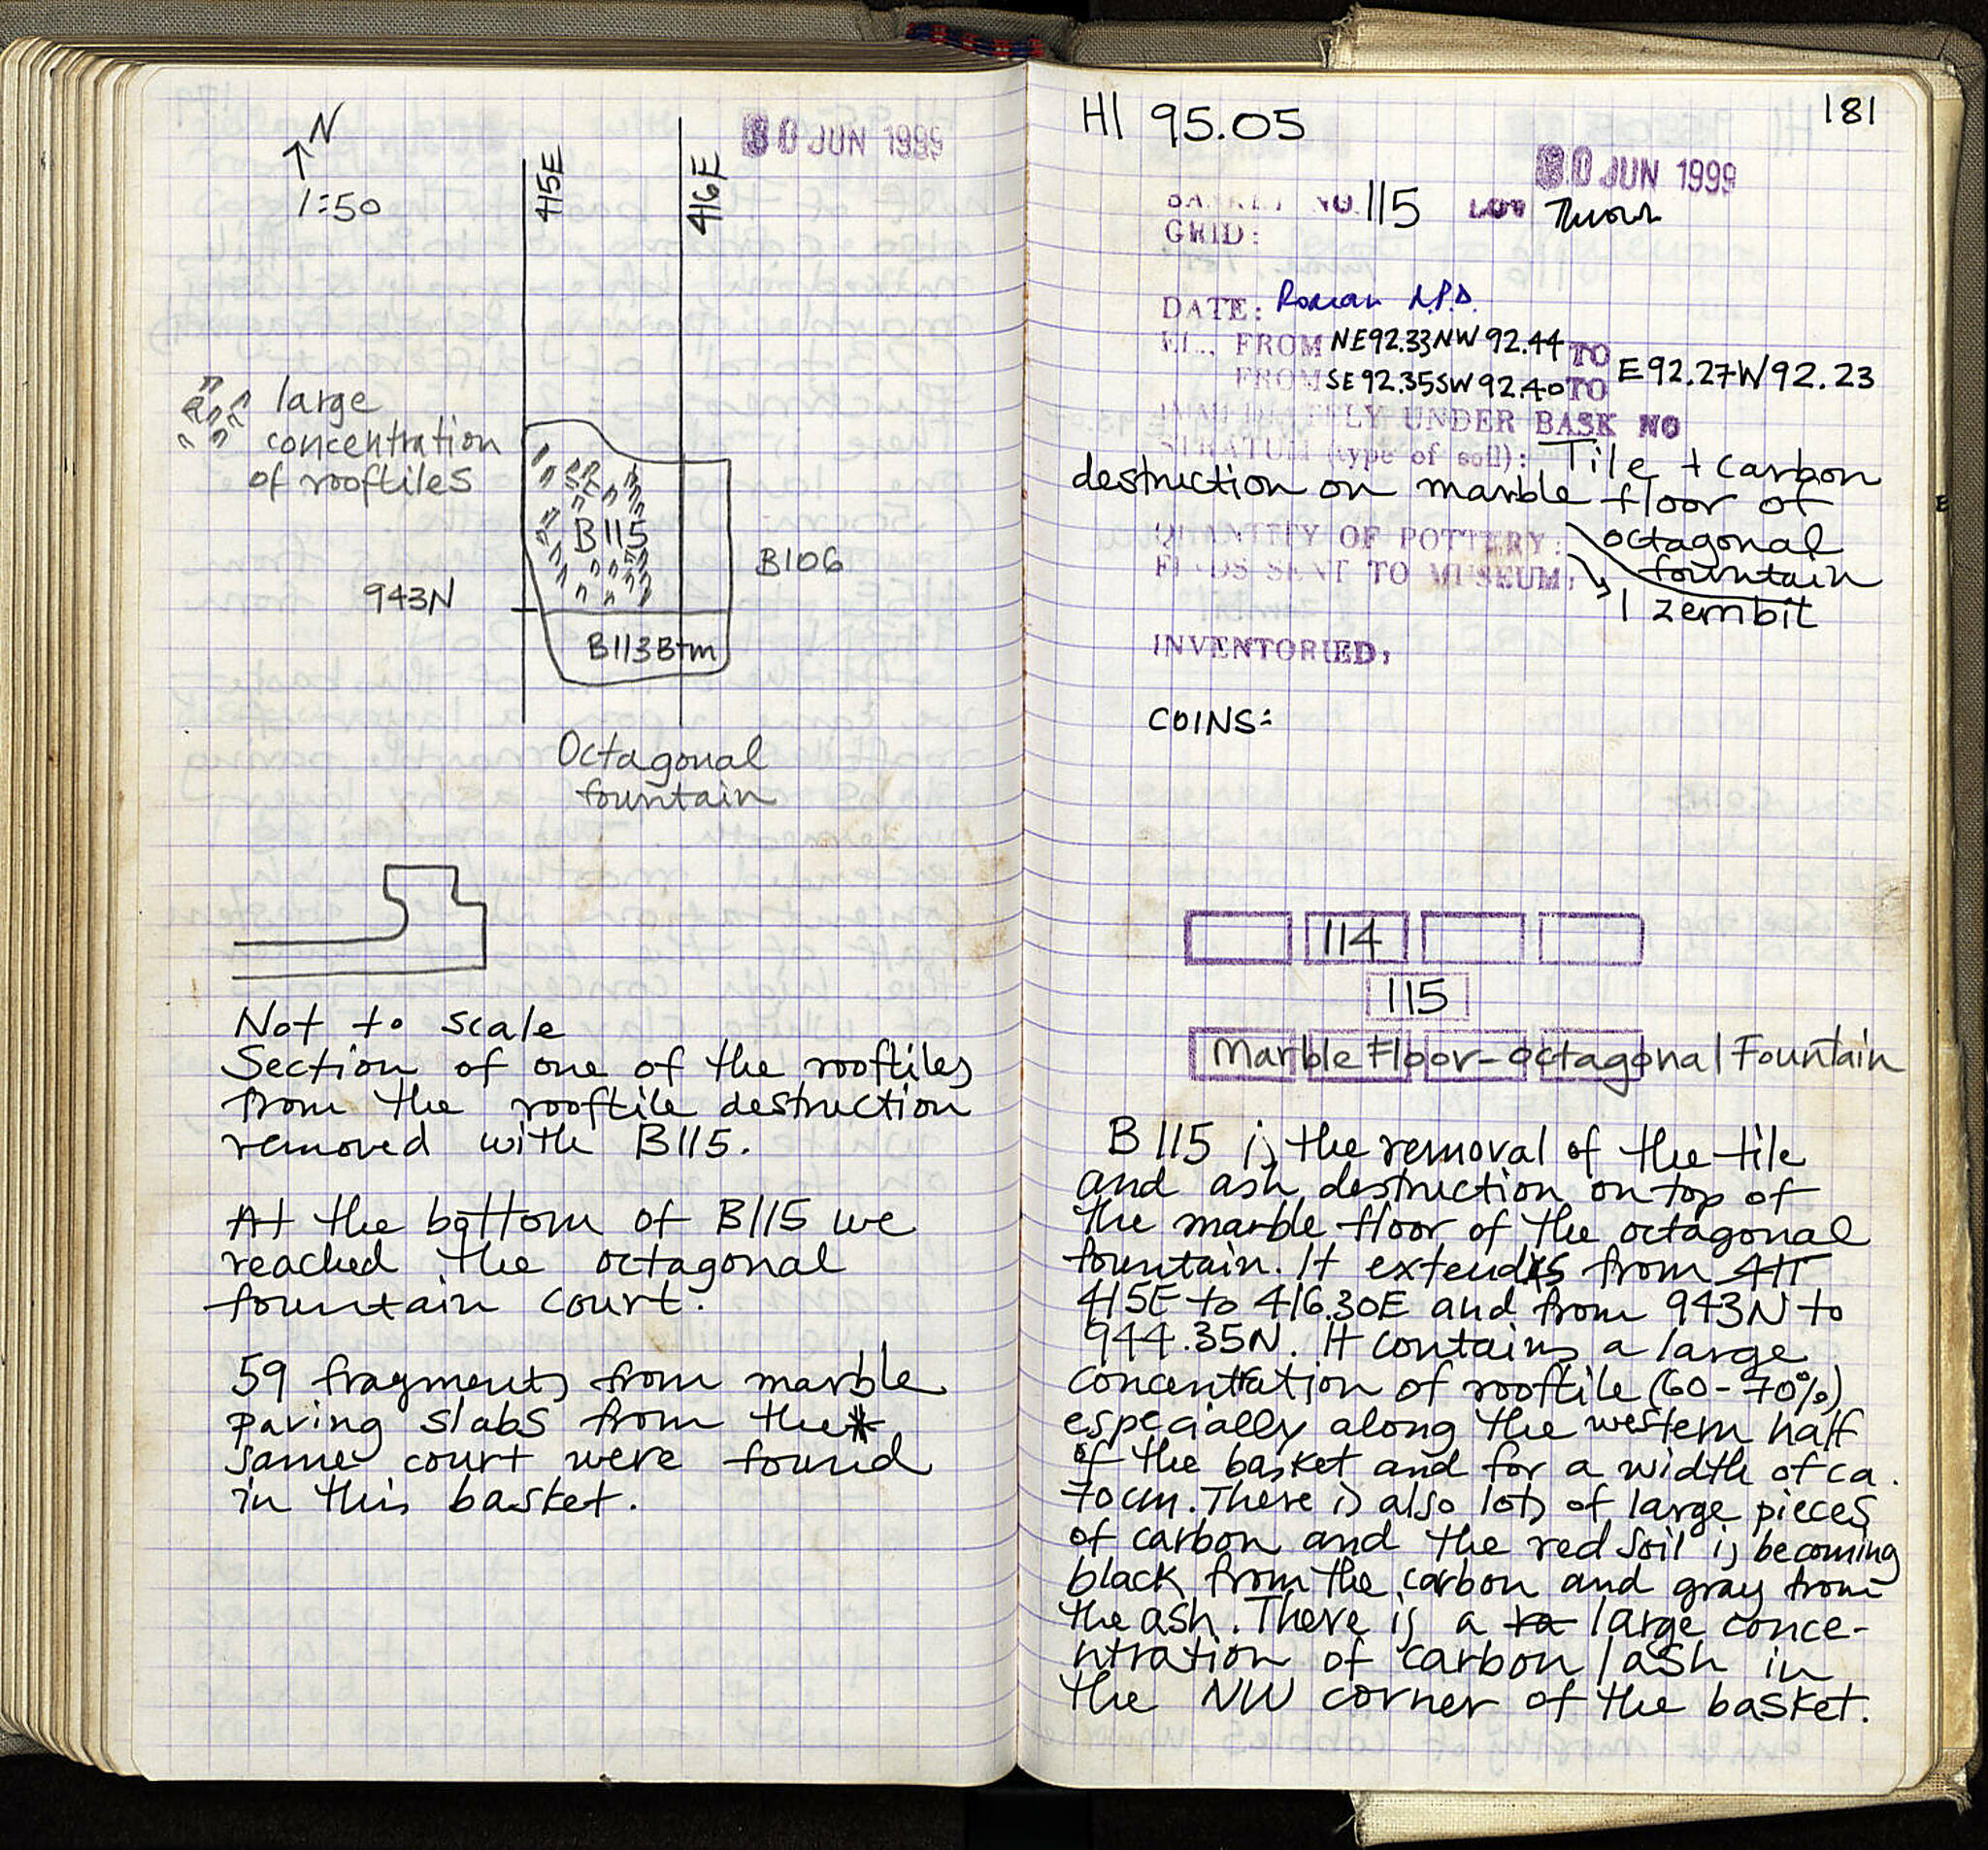 N
1:50
30 JUN 1999
415E
416E
large
concentration
of rooftiles
B115
B106
943N
B113Btm
Octagonal
fountain
Not to scale
Section of one of the rooftiles
from the rooftile destruction
removed with B115.
At the bottom of B115 we
reached the octagonal
fountain court.
59 fragments from marble
paving slabs from the
same court were found
in this basket.
H1 95.05
181
30 JUN 1999
BASKET NO. 115 LOT
GRID:
DATE: Roman
EL., FROM NE92.33NW 92.44 TO
FROM SE92.35SW 92.40 TO E92.27W92.23
IMMEDIATELY UNDER BASK NO
STRATUM (type of soil): Tile + Carbon
destruction on marble floor of
QUANTITY OF POTTERY: octagonal
fountain
FINDS SENT TO MUSEUM:
1 zembil
INVENTORIED:
COINS:
114
115
Marble Floor-octagonal Fountain
B115 is the removal of the tile
and ash destruction on top of
the marble floor of the octagonal
fountain. It extends from 411
415E to 416.30E and from 943N to
944.35N. It contains a large
concentration of rooftile (60-70%)
especially along the western half
of the basket and for a width of ca.
70cm. There is also lots of large pieces
of carbon and the red soil is becoming
black from the carbon and gray from
the ash. There is a ra large conce-
ntration of carbon/ash in
the NW corner of the basket.